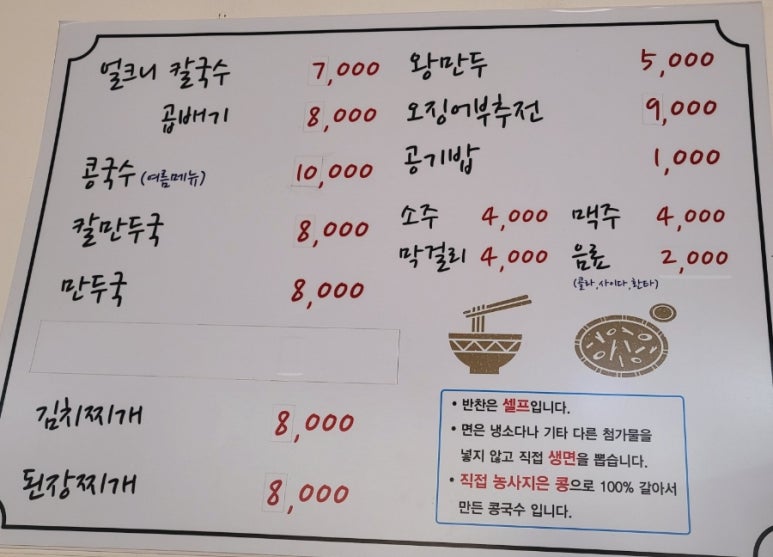 얼크니 칼국수 7,000
곱배기 8,000
콩국수 (여름메뉴) 10,000
칼만두국 8,000
만두국 8,000
김치찌개 8,000
된장찌개 8,000
왕만두 5,000
오징어부추전 9,000
공기밥 1,000
소주 4,000 맥주 4,000
막걸리 4,000 음료 2,000
(콜라,사이다,환타)
• 반찬은 셀프입니다.
• 면은 냉소다나 기타 다른 첨가물을
넣지 않고 직접 생면을 뽑습니다.
• 직접 농사지은 콩으로 100% 갈아서
만든 콩국수 입니다.